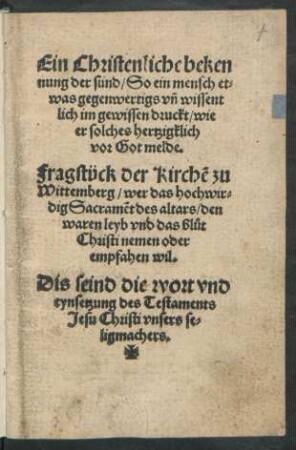 Ein Christenliche beken
nung der sünd/ So ein mensch et-
was gegenwertigs vñ wissent
lich im gewissen druckt/ wie
er solches hertzigklich
vor Got melde.
Fragstück der Kirchẽ zu
Wittemberg/ wer das hochwir-
dig Sacramẽt des altars/ den
waren leyb vnd das blůt
Christi nemen oder
empfahen wil.
Dis seind die wort vnd
eynsetzung des Testaments
Jesu Christi vnsers se-
ligmachers.